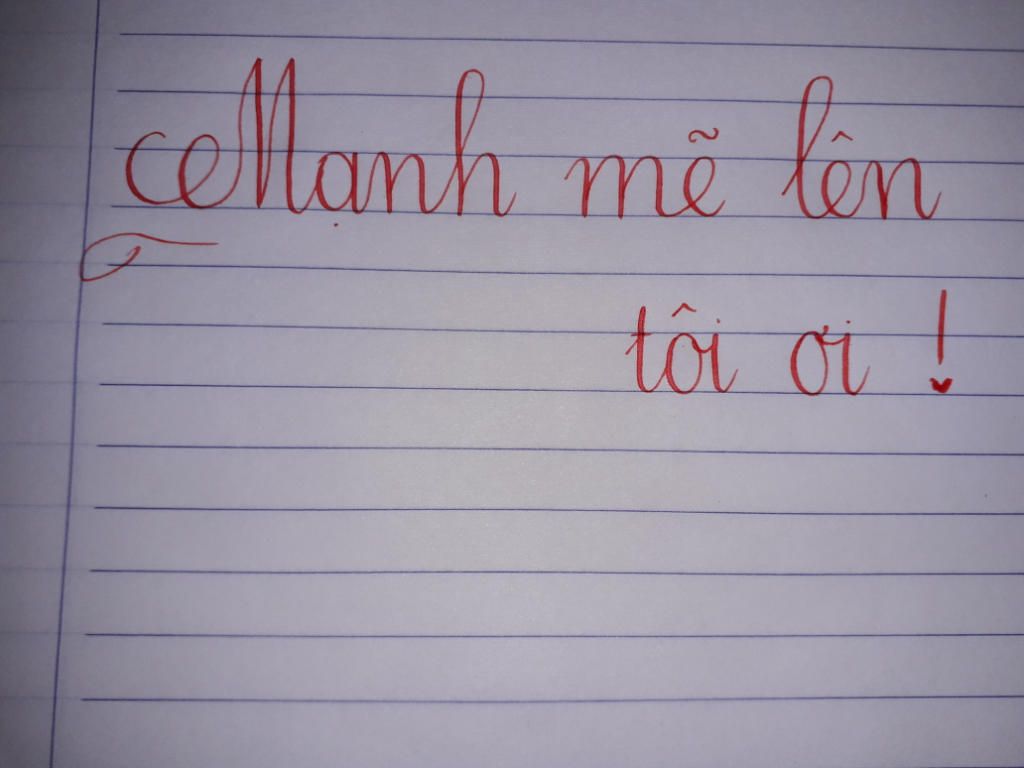 Mạnh mẽ lên
tôi ơi !